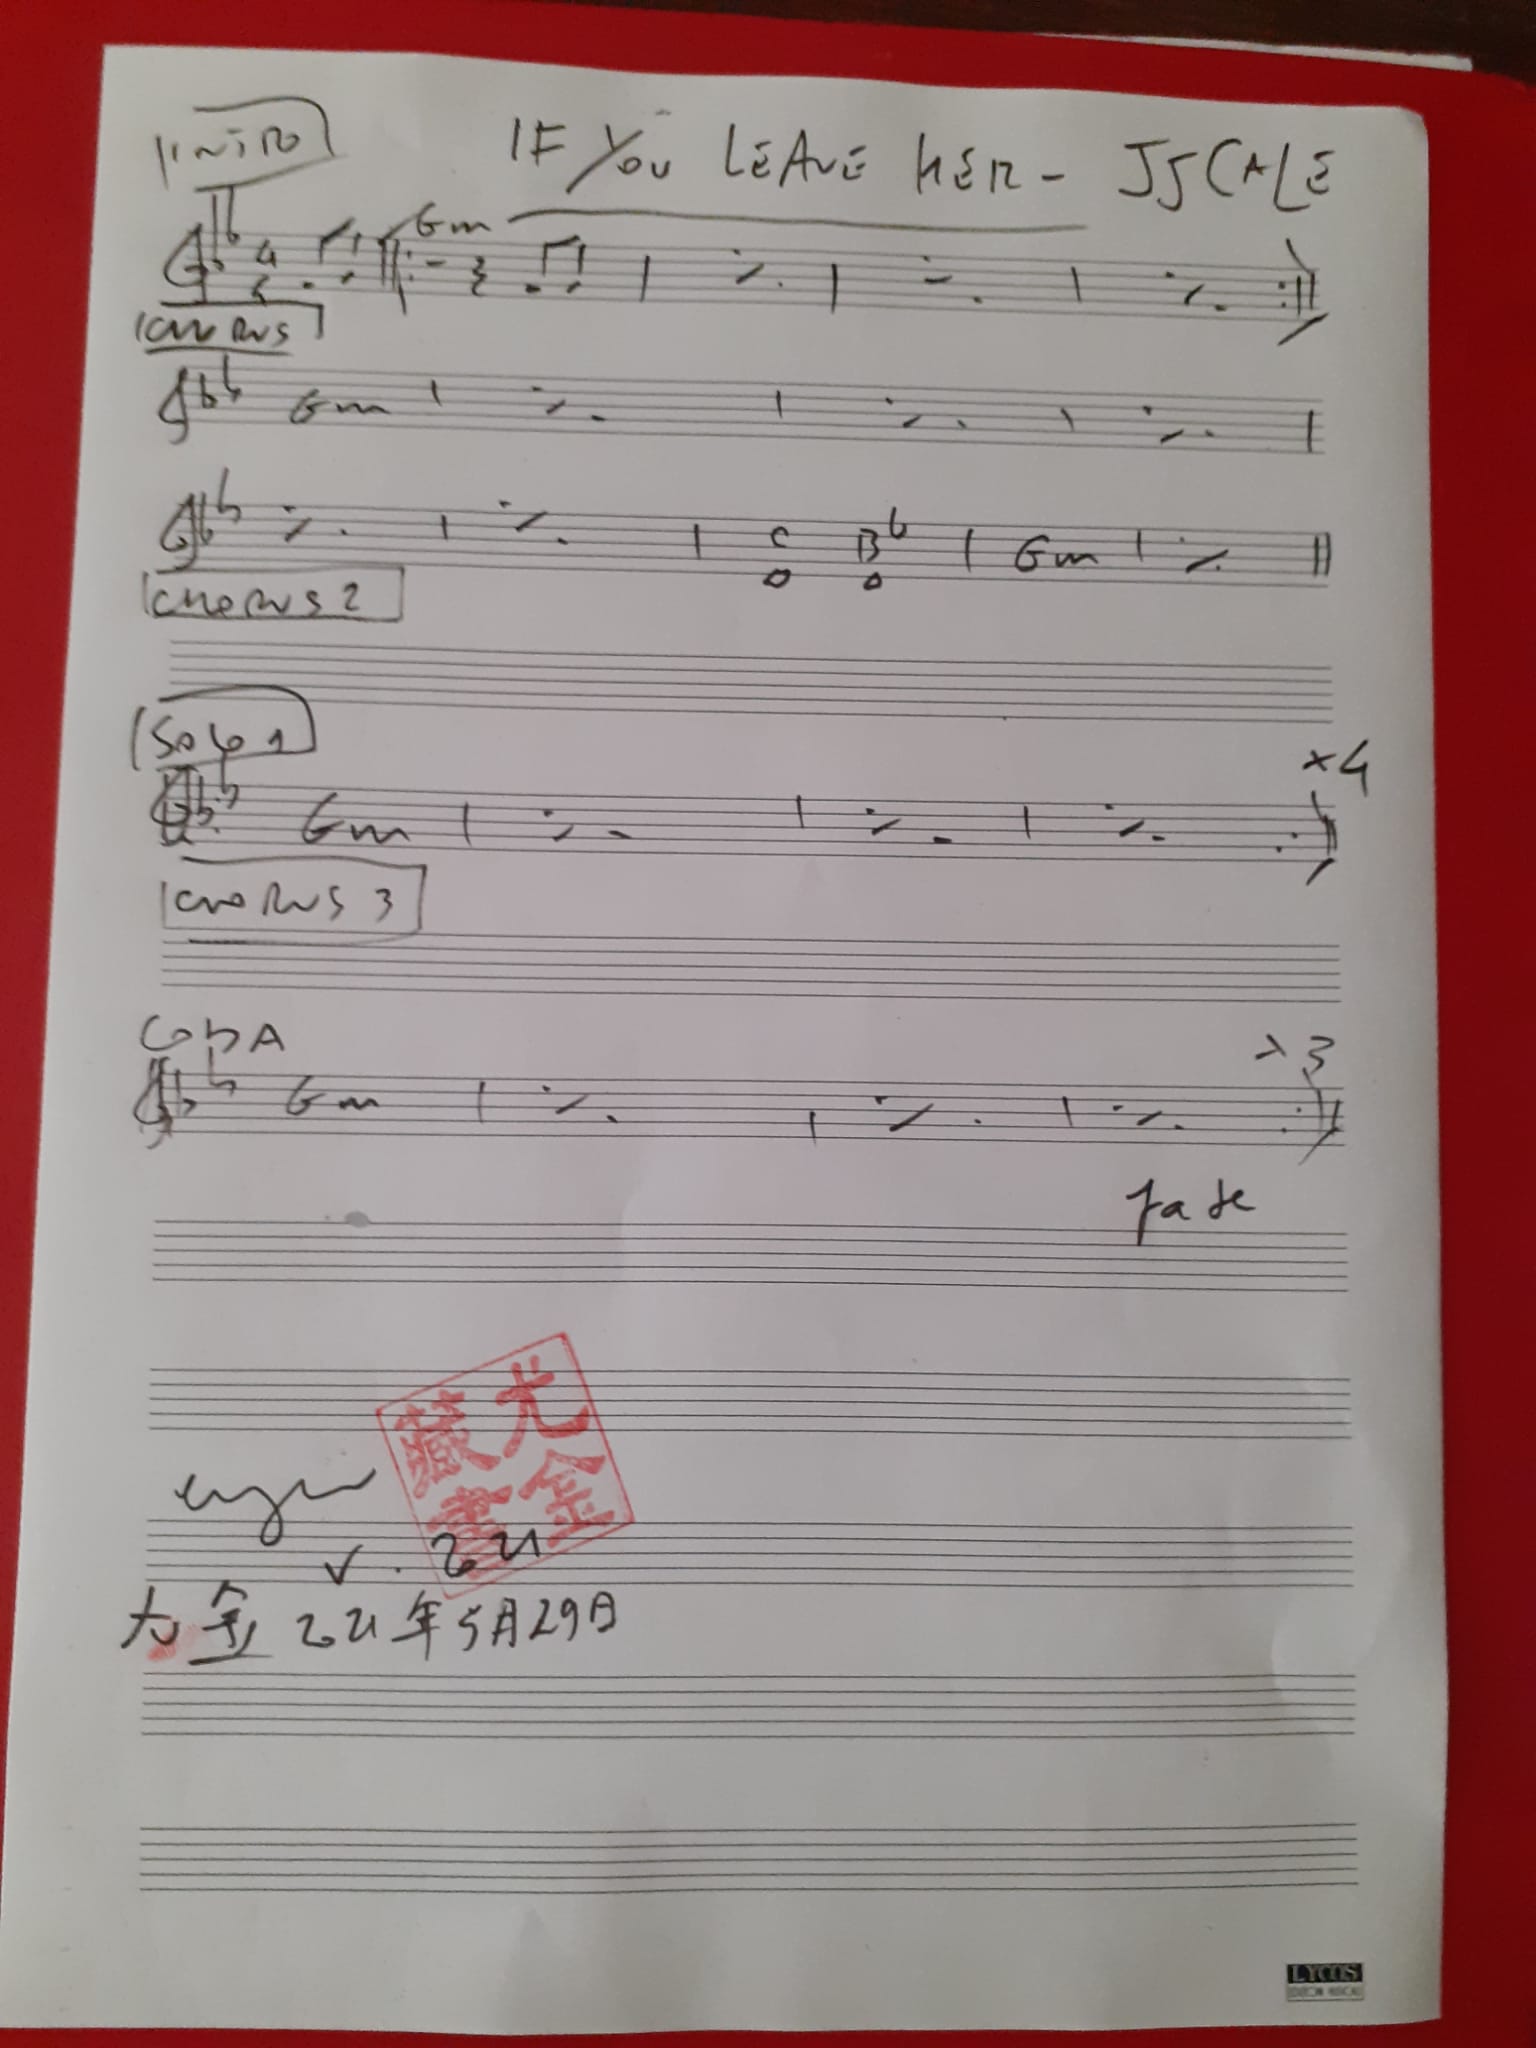 INTRO
IF YOU LEAVE HER - JJ CALE
Gm
4
CHORUS
Gm
C B♭ Gm
CHORUS 2
SOLO 1
x4
Gm
CHORUS 3
CODA
x3
Gm
fade
尤金
藏書
V. 2021
尤金 2021年5月29日
LYCOS